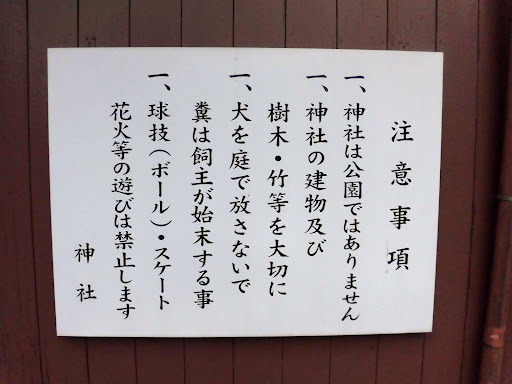 注意事項
一、神社は公園ではありません
一、神社の建物及び
樹木・竹等を大切に
一、犬を庭で放さないで
糞は飼主が始末する事
一、球技(ボール)・スケート
花火等の遊びは禁止します
神社